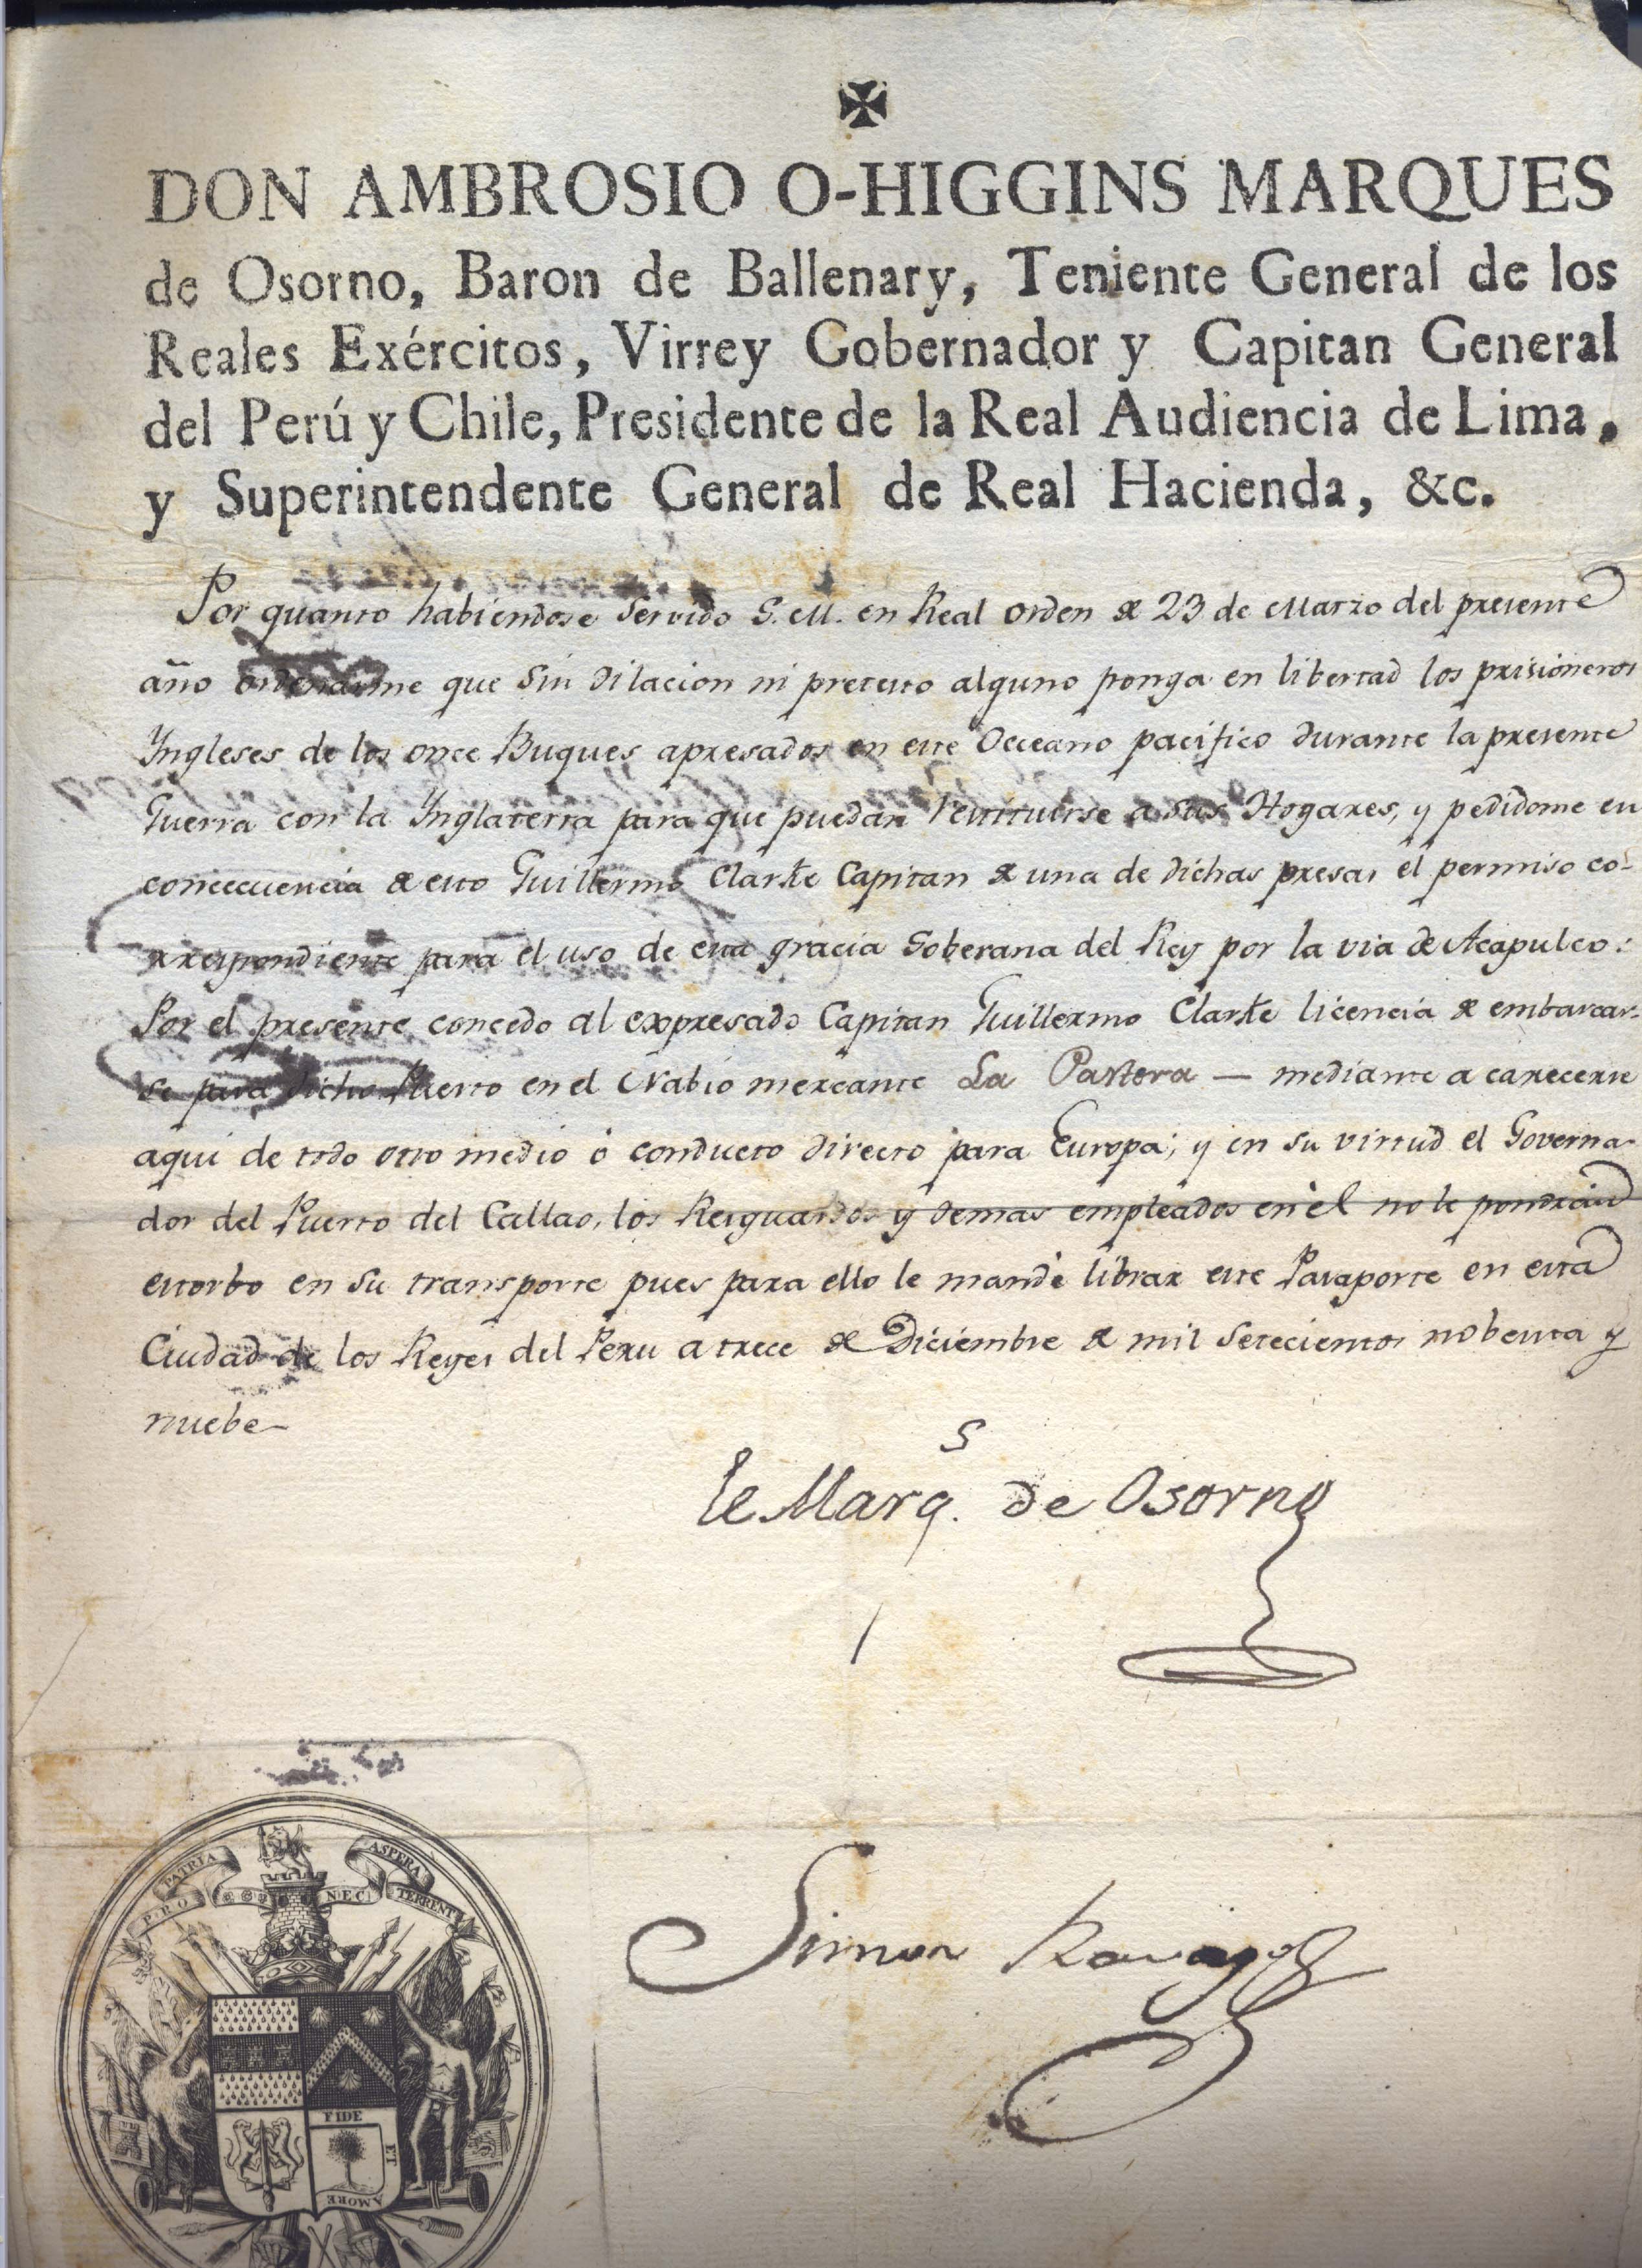 DON AMBROSIO O-HIGGINS MARQUES
de Osorno, Baron de Ballenary, Teniente General de los
Reales Exércitos, Virrey Gobernador y Capitan General
del Perú y Chile, Presidente de la Real Audiencia de Lima,
y Superintendente General de Real Hacienda, &c.
Por quanto habiendose servido S. M. en Real orden de 23 de Marzo del presente
año ordenarme que sin dilacion ni pretesto alguno ponga en libertad los prisioneros
Yngleses de los once Buques apresados en este Occeano pacifico durante la presente
Guerra con la Ynglaterra para que puedan restituirse a sus Hogares, y pedidome en
concecuencia de esto Guillermo Clarke Capitan de una de dichas presas el permiso co-
rrespondiente para el uso de esta gracia Soberana del Rey por la via de Acapulco:
Por el presente concedo al expresado Capitan Guillermo Clarke licencia de embarcar-
se para dicho Puerto en el Nabio mercante La Pastora — mediante a carecerse
aqui de todo otro medio ó conducto directo para Europa; y en su virtud el Governa-
dor del Puerto del Callao, los Resguardos y demas empleados en él no le pondrán
estorbo en su transporte pues para ello le mandé librar este Pasaporte en esta
Ciudad de los Reyes del Peru a trece de Diciembre de mil setecientos nobenta y
nuebe—
le Marq.s de Osorno
Simon Ravago
PRO PATRIA
NEC ASPERA TERRENT
FIDE
ET
AMORE